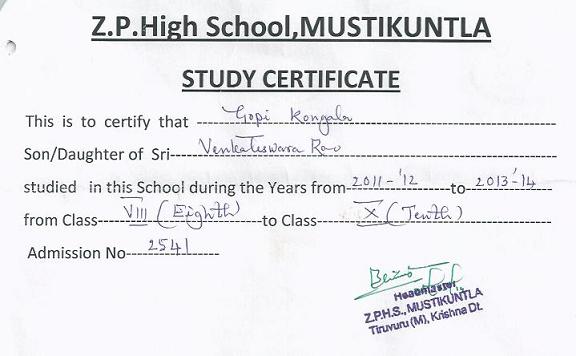 Z.P.High School,MUSTIKUNTLA
STUDY CERTIFICATE
This is to certify that Gopi Kongala
Son/Daughter of Sri Venkateswara Rao
studied in this School during the Years from 2011-'12 to 2013-'14
from Class VIII (Eighth) to Class X (Tenth)
Admission No 2541
Headmaster
Z.P.H.S., MUSTIKUNTLA
Tiruvuru (M), Krishna Dt.